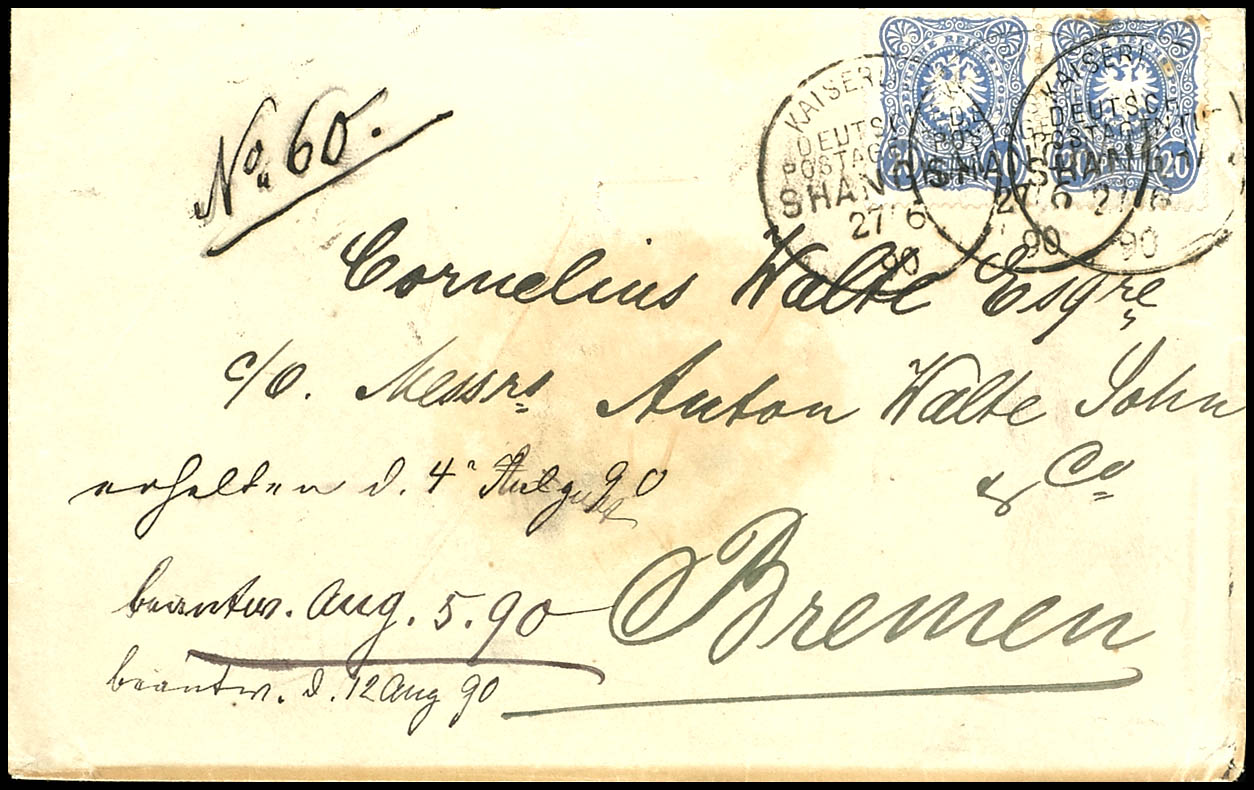 No. 60.
KAISERL
DEUTSCHE
POSTAGENTUR
SHANGHAI
27 6
90
KAISERL
DEUTSCH
POSTAGENTU
SHANGHAI
27 6
90
20 20
Cornelius Walte Esqre
c/o. Messrs Anton Walte John
& Co
erhalten d. 4 90
Bremen
beantw. Aug. 5. 90
beantw. d. 12 Aug 90